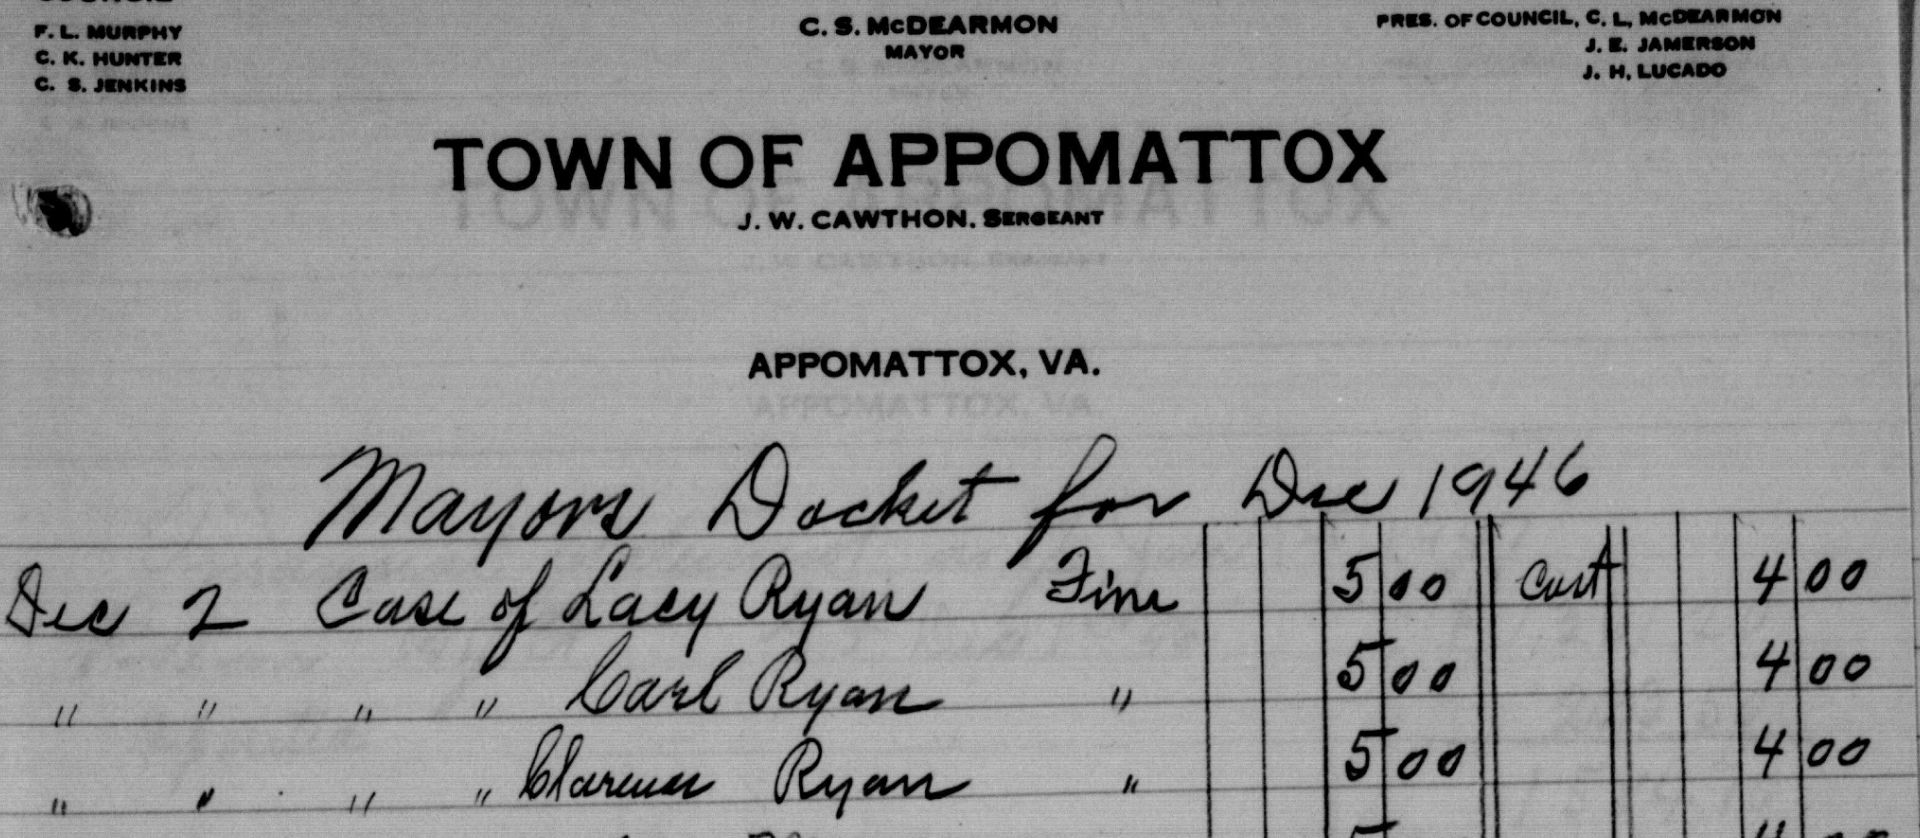 COUNCIL
F. L. MURPHY
C. K. HUNTER
C. S. JENKINS
C. S. McDEARMON
MAYOR
PRES. OF COUNCIL, C. L. McDEARMON
J. E. JAMERSON
J. H. LUCADO
TOWN OF APPOMATTOX
J. W. CAWTHON. SERGEANT
APPOMATTOX, VA.
Mayors Docket for Dec 1946
Dec 2 Case of Lacy Ryan Fine 5 00 Cost 4 00
" " " " Carl Ryan " 5 00 4 00
" " " " Clarence Ryan " 5 00 4 00